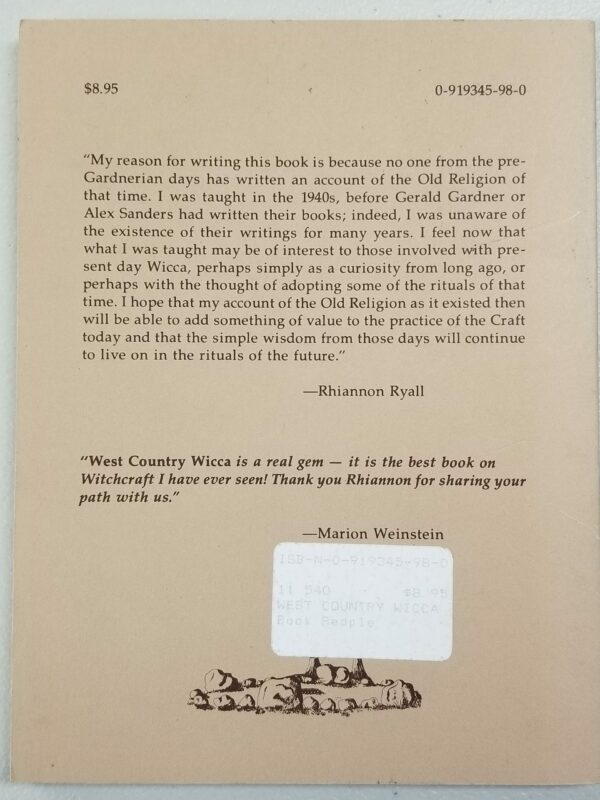 $8.95 0-919345-98-0
"My reason for writing this book is because no one from the pre-
Gardnerian days has written an account of the Old Religion of
that time. I was taught in the 1940s, before Gerald Gardner or
Alex Sanders had written their books; indeed, I was unaware of
the existence of their writings for many years. I feel now that
what I was taught may be of interest to those involved with pre-
sent day Wicca, perhaps simply as a curiosity from long ago, or
perhaps with the thought of adopting some of the rituals of that
time. I hope that my account of the Old Religion as it existed then
will be able to add something of value to the practice of the Craft
today and that the simple wisdom from those days will continue
to live on in the rituals of the future."
—Rhiannon Ryall
"West Country Wicca is a real gem — it is the best book on
Witchcraft I have ever seen! Thank you Rhiannon for sharing your
path with us."
—Marion Weinstein
ISB-N-0-919345-98-0
11 540 $8.95
WEST COUNTRY WICCA
Book